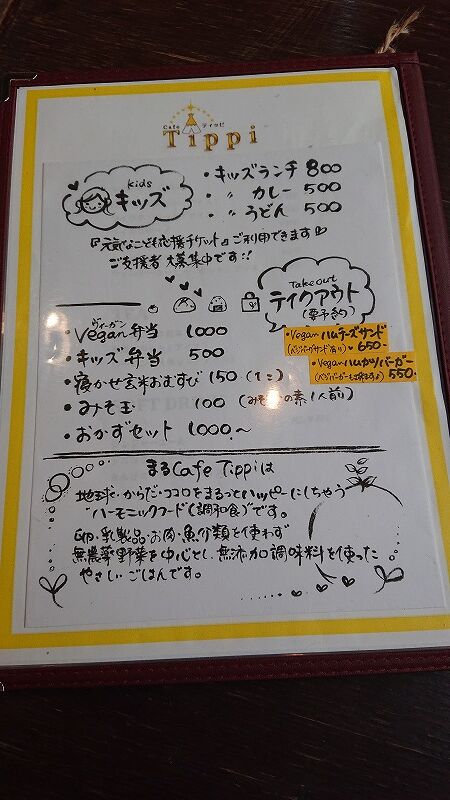 Cafe ティッピ
Tippi
kids
キッズ
・キッズランチ 800
・〃 カレー 500
・〃 うどん 500
『元気なこども応援チケット』ご利用できます
ご支援者 大募集中です!!
Takeout
テイクアウト
(要予約)
・Vegan弁当 1000
ヴィーガン
・キッズ弁当 500
・寝かせ玄米おむすび 150 (1コ)
・みそ玉 100 (みその素1人前)
・おかずセット 1000.〜
・Vegan ハムチーズサンド
650-
・Vegan ハムカツバーガー
550-
まるCafe Tippiは
地球・からだ・ココロをまるっとハッピーにしちゃう
"ハーモニックフード(調和食)です。
卵・乳製品・お肉・魚介類を使わず
無農薬野菜を中心とし、無添加調味料を使った
やさしいごはんです。